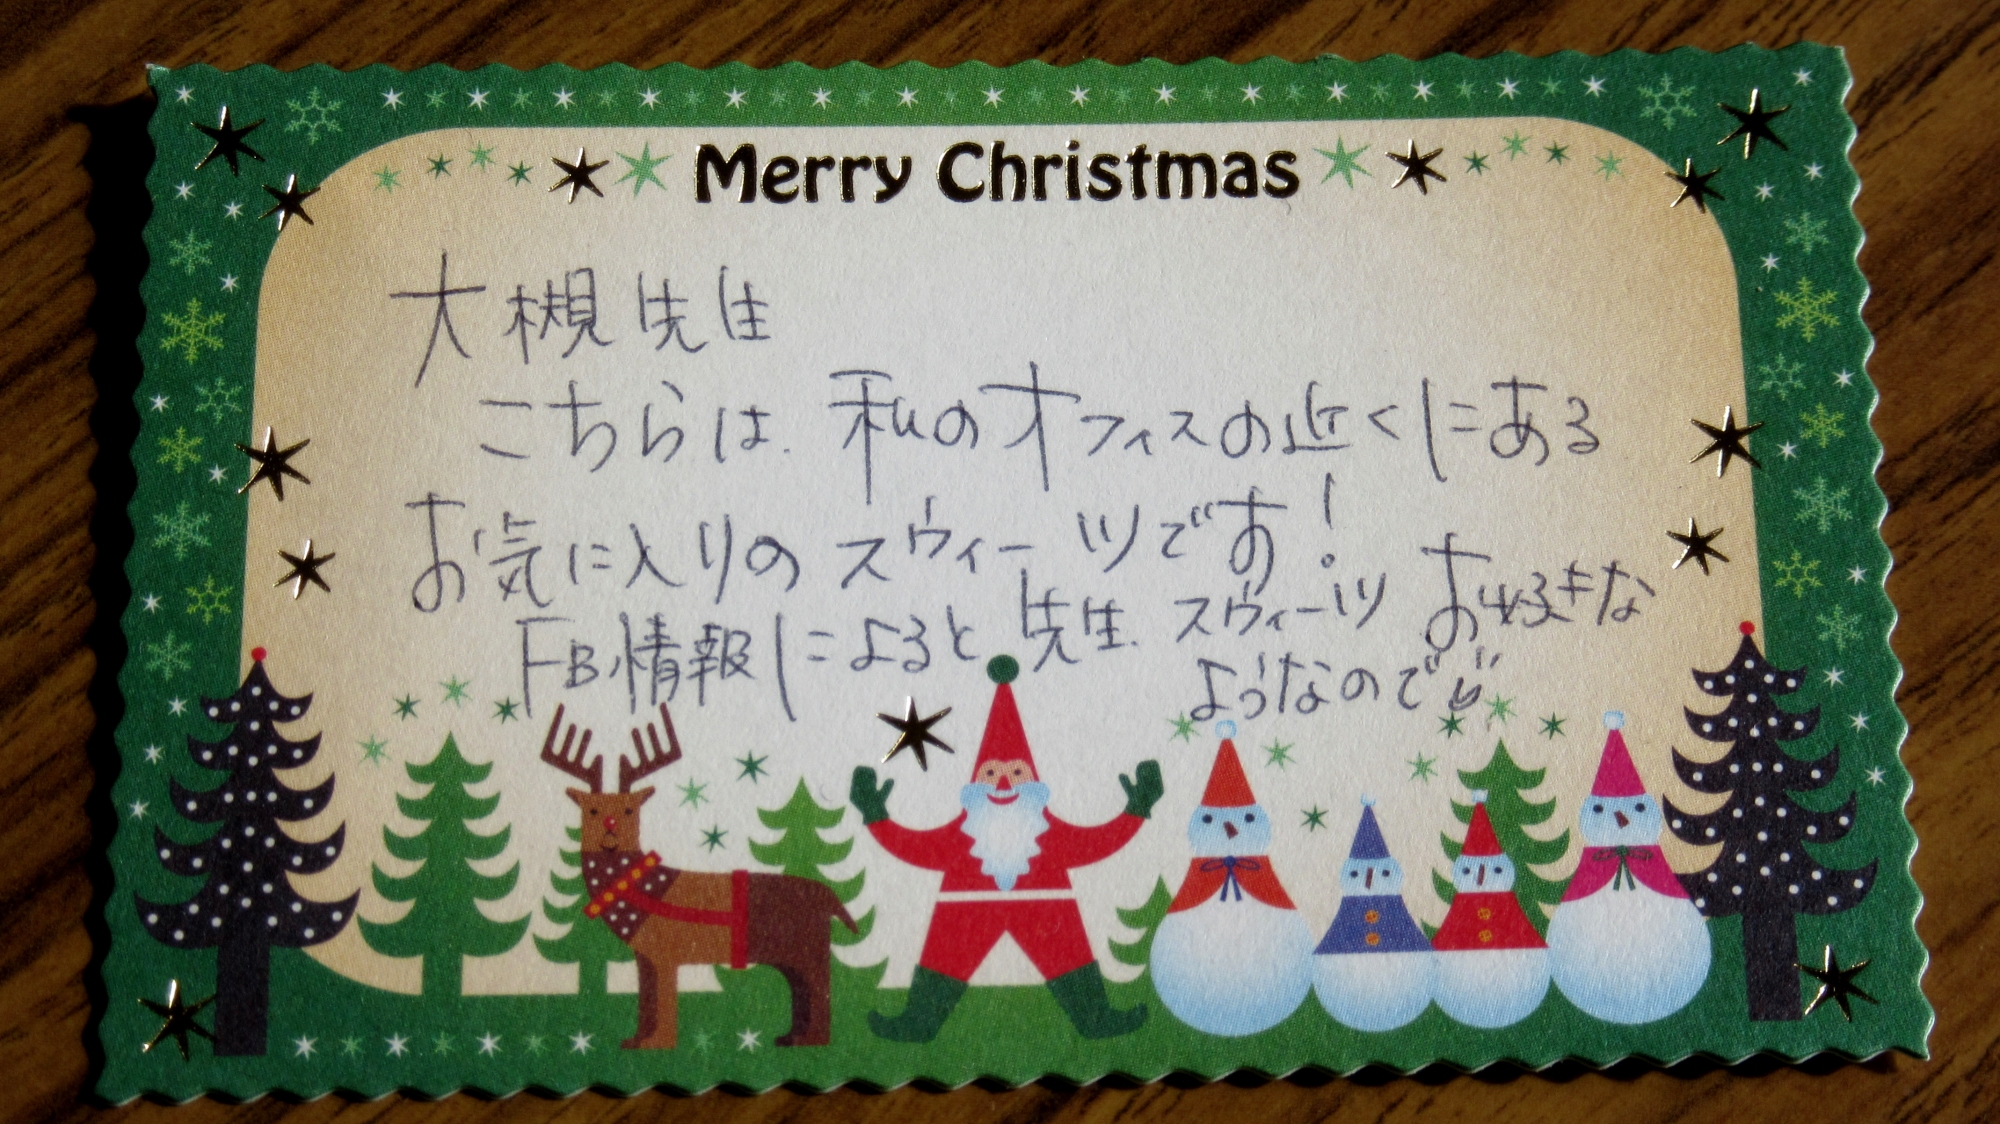 Merry Christmas
大槻先生
こちらは、私のオフィスの近くにある
お気に入りのスウィーツです!
FB情報によると先生、スウィーツお好きな
ようなので